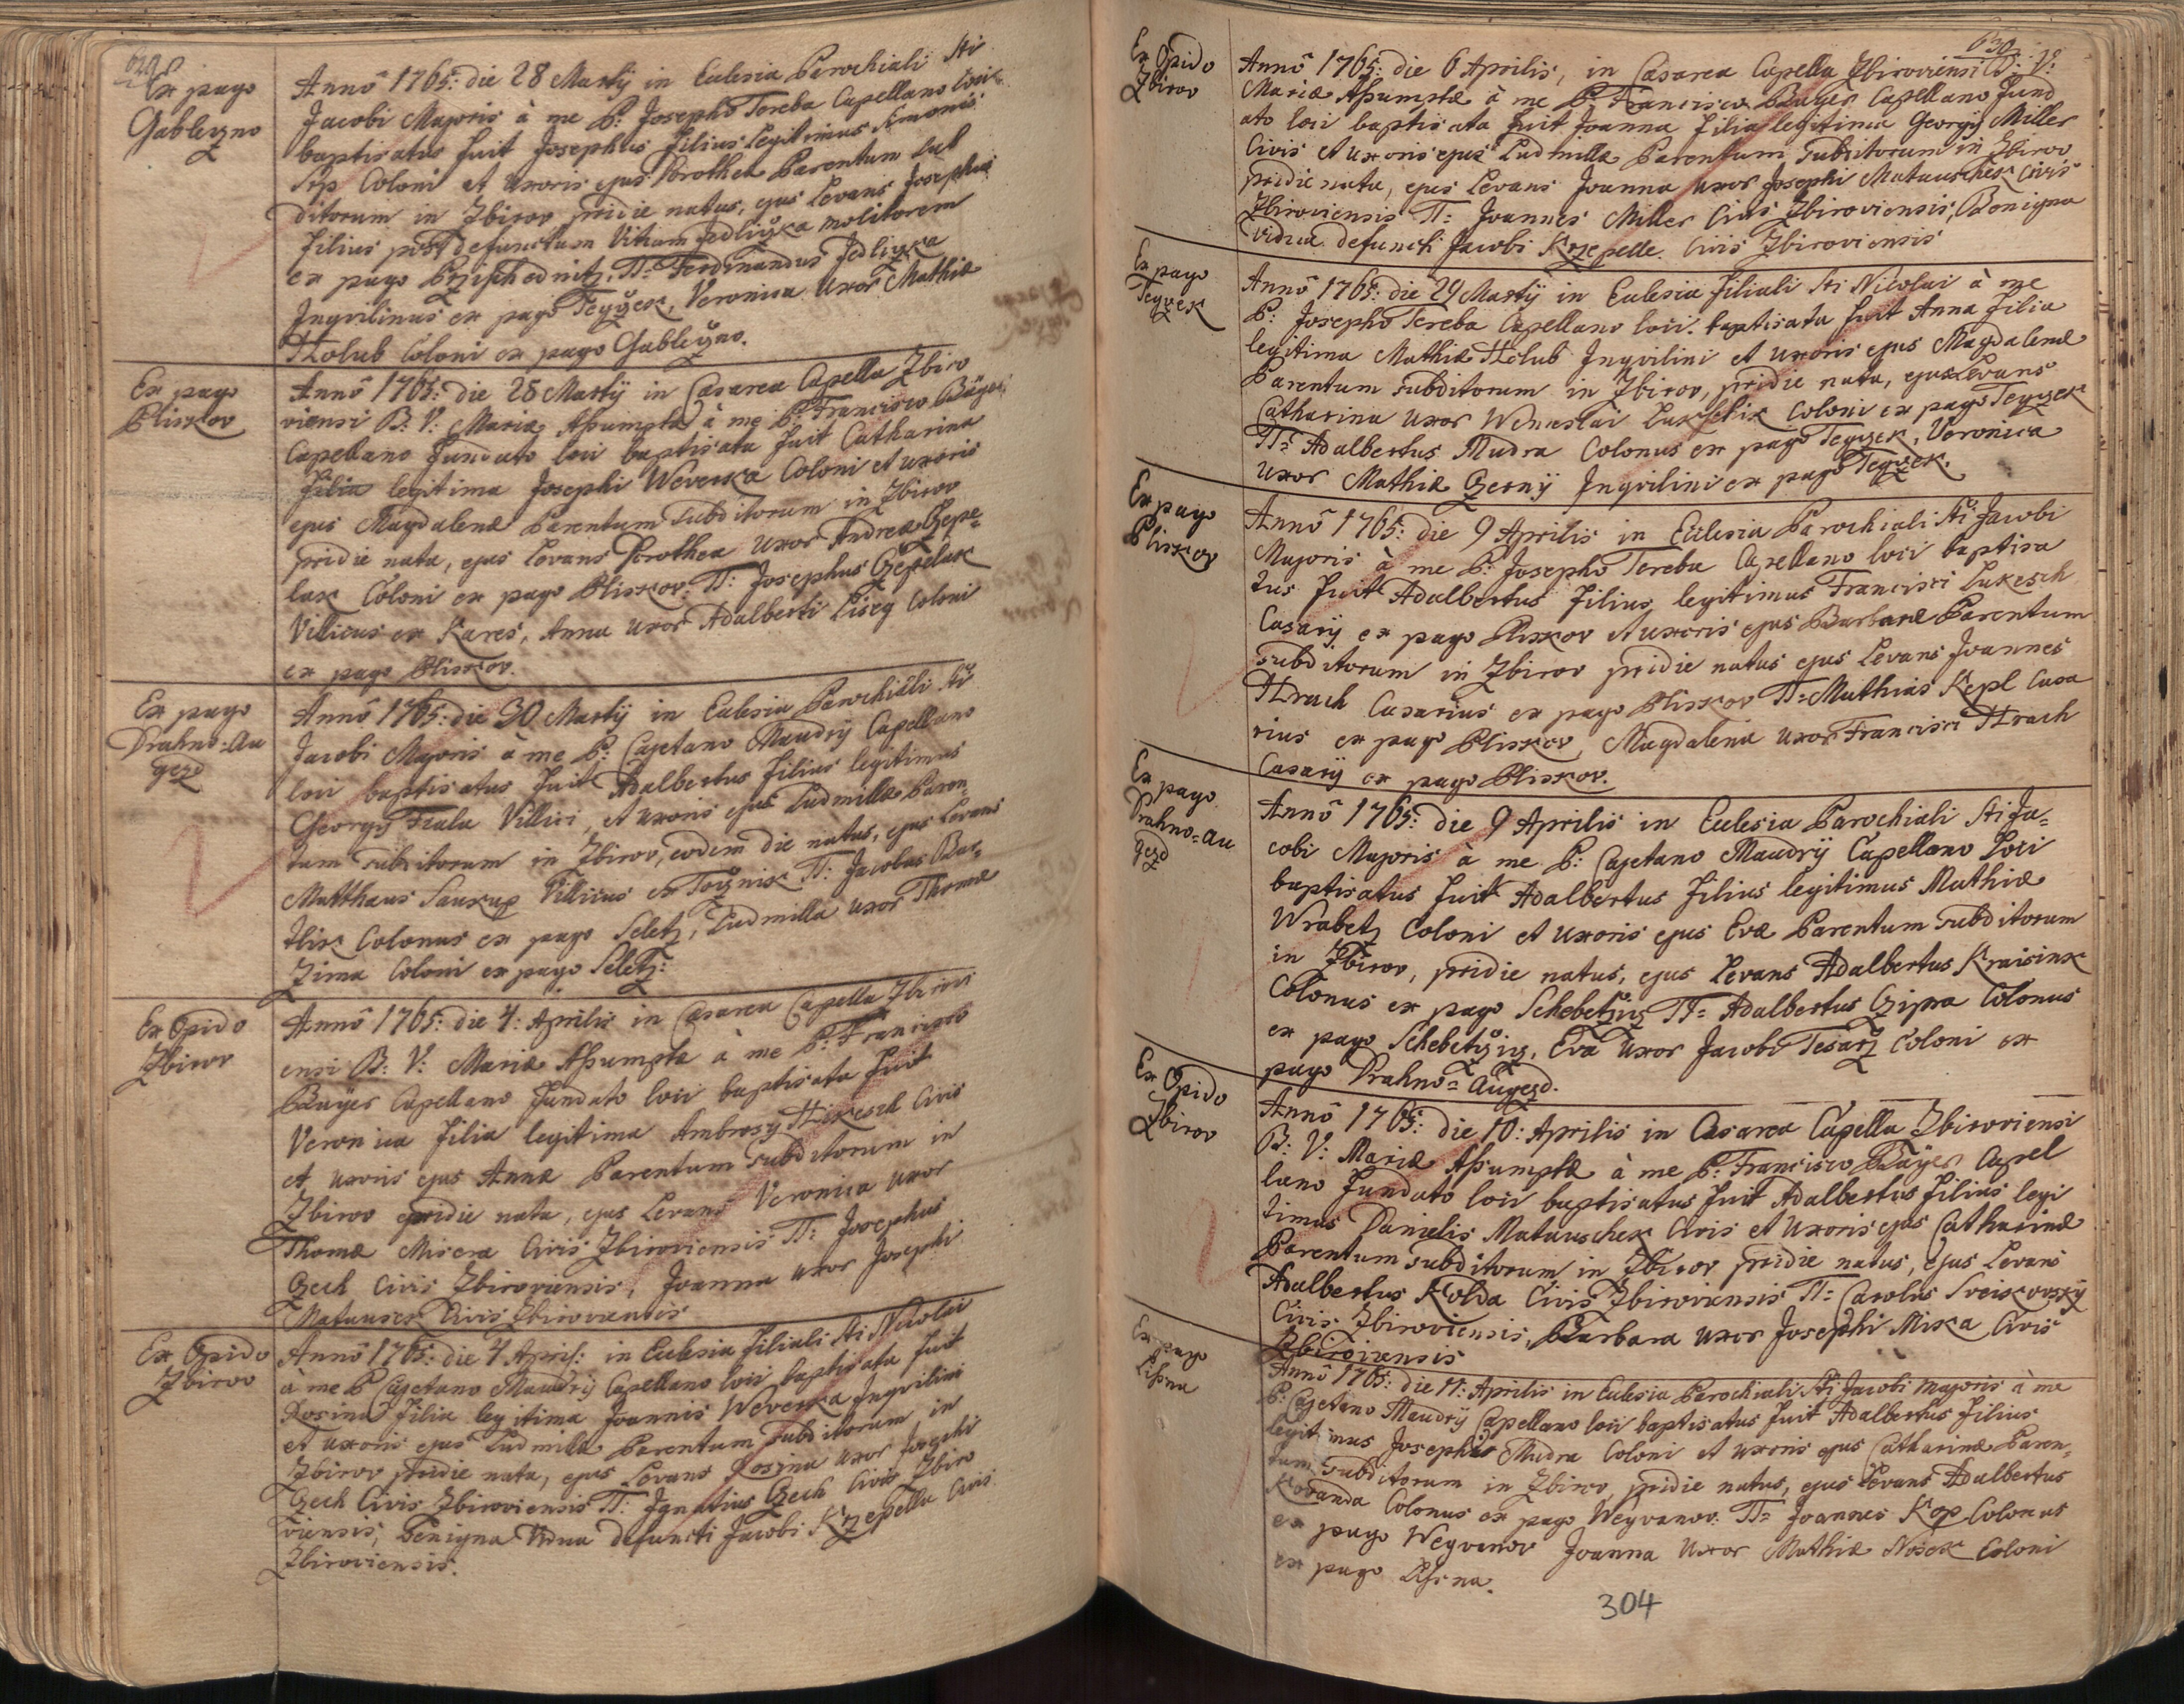 629
Ex pago
Gableczno
Anno 1765: die 28 Martij in Eclesia Parochiali Sti
Jacobi Majoris à me P: Josepho Tereba Capellano loci
baptisatus fuit Josephus Filius Legitimus Simonis
Coloni et Uxoris ejus Dorothea Parentum sub
ditorum in Zbirov pridie natus, ejus Levans Josephus
Filius post defunctum Vitum Jedliczka molitorem
ex pago TT: Ferdinandus Jedliczka
Inqvilinus ex pago Teyczek, Veronica Uxor Mathiæ
Holub Coloni ex pago Gableczno.
Ex pago
Pliskov
Anno 1765: die 28 Martij in Cæsarea Capella Zbiro
viensi B: V: Mariæ Assumptæ à me P: Francisco Bäyer
Capellano Fundato loci baptisata fuit Catharina
Filia legitima Josephi Weverka Coloni et uxoris
ejus Magdalenæ Parentum subditorum in Zbirov
pridie nata, ejus Levans Dorothea Uxor Andreæ Czepe=
lak Coloni ex pago Pliskov: TT: Josephus Czepelak
Villicus ex Kares, Anna Uxor Adalberti Pisey Coloni
ex pago Pliskov.
Ex pago
Drahno=Au
gezd
Anno 1765: die 30 Martij in Eclesia Parochiali Sti
Jacobi Majoris à me P: Cajetano Maudrij Capellano
loci baptisatus fuit Adalbertus Filius legitimus
Georgij Fiala Villici, et Uxoris ejus Ludmillæ Paren=
tum subditorum in Zbirov, eodem die natus, ejus Levans
Matthæus Saukup Villicus ex Tocznik TT: Jacobus Bar=
tlik Colonus ex pago Seletz, Ludmilla uxor Thomæ
Zima Coloni ex pago Seletz:
Ex Opido
Zbirov
Anno 1765: die 4: Aprilis in Cæsarea Capella Zbirovi
ensi B: V: Mariæ Assumptæ à me P: Francisco
Bäyer Capellano Fundato loci baptisata fuit
Veronica Filia legitima Ambrosij Hikesch Civis
et uxoris ejus Annæ Parentum subditorum in
Zbirov pridie nata, ejus Levans Veronica uxor
Thomæ Misera Civis Zbiroviensis TT: Josephus
Czech Civis Zbiroviensis, Joanna uxor Josephi
Matausek Civis Zbiroviensis
Ex Opido
Zbirov
Anno 1765: die 4 April: in Eclesia Filiali Sti Nicolai
à me P Cajetano Maudrij Capellano loci baptisata fuit
Rosina Filia legitima Joannis Weverka Inqvilini
et uxoris ejus Ludmillæ Parentum subditorum in
Zbirov pridie nata, ejus Levans Rosina uxor Josephi
Czech Civis Zbiroviensis TT: Ignatius Czech Civis Zbiro
viensis, Benigna Vidua defuncti Jacobi Krzepella Civis
Zbiroviensis.
630
Ex Opido
Zbirov
Anno 1765: die 6 Aprilis, in Cæsarea Capella Zbiroviensi B: V:
Mariæ Assumptæ à me P: Francisco Bäyer Capellano Fund
ato loci baptisata fuit Joanna Filia legitima Georgij Miller
Civis et uxoris ejus Ludmillæ Parentum subditorum in Zbirov
pridie nata, ejus Levans Joanna uxor Josephi Matauschek Civis
Zbiroviensis TT: Joannes Miller Civis Zbiroviensis, Benigna
Vidua defuncti Jacobi Krzepelle Civis Zbiroviensis
Ex pago
Teyczek
Anno 1765: die 29 Martij in Eclesia Filiali Sti Nicolai à me
P: Josepho Tereba Capellano loci baptisata fuit Anna Filia
legitima Mathiæ Holub Inqvilini et uxoris ejus Magdalenæ
Parentum subditorum in Zbirov, pridie nata, ejus Levans
Catharina uxor Wenceslai Lukschik Coloni ex pago Teyczek
TT= Adalbertus Mudra Colonus ex pago Teyczek, Veronica
uxor Mathiæ Czerny Inqvilini ex pago Teyczek.
Ex pago
Pliskov
Anno 1765: die 9 Aprilis in Eclesia Parochiali Sti Jacobi
Majoris à me P: Josepho Tereba Capellano loci baptisa
tus fuit Adalbertus Filius legitimus Francisci Lukesch
Casarij ex pago Pliskov et uxoris ejus Barbaræ Parentum
subditorum in Zbirov pridie natus ejus Levans Joannes
Hrach Casarius ex pago Pliskov TT= Mathias Kepl Casa
rius ex pago Pliskov, Magdalena uxor Francisci Hrach
Casarij ex pago Pliskov.
Ex pago
Drahno=Au
gezd
Anno 1765: die 9 Aprilis in Eclesia Parochiali Sti Ja=
cobi Majoris à me P: Cajetano Maudrij Capellano Loci
baptisatus fuit Adalbertus Filius legitimus Mathiæ
Wrabetz Coloni et uxoris ejus Evæ Parentum subditorum
in Zbirov, pridie natus, ejus Levans Adalbertus Kraisink
Colonus ex pago Schebetziz TT= Adalbertus Czipra Colonus
ex pago Schebetziz, Eva uxor Jacobi Tesarz Coloni ex
pago Drahno=Augezd.
Ex Opido
Zbirov
Anno 1765: die 10: Aprilis in Cæsarea Capella Zbiroviensi
B: V: Mariæ Assumptæ à me P: Francisco Bäyer Capel
lano Fundato loci baptisatus fuit Adalbertus Filius legi
timus Danielis Matauschek Civis et Uxoris ejus Catharinæ
Parentum subditorum in Zbirov pridie natus, ejus Levans
Adalbertus Kolda Civis Zbiroviensis TT= Carolus Sveiskovsky
Civis Zbiroviensis, Barbara uxor Josephi Mika Civis
Zbiroviensis
Ex pago
Lissna
Anno 1765: die 11: Aprilis in Eclesia Parochiali Sti Jacobi Majoris à me
P: Cajetano Maudrij Capellano loci baptisatus fuit Adalbertus Filius
legitimus Josephus Mudra Coloni et uxoris ejus Catharinæ Paren=
tum subditorum in Zbirov, pridie natus, ejus Levans Adalbertus
Kovanda Colonus ex pago Weyvanov: TT= Joannes Kop Colonus
ex pago Weyvanov Joanna uxor Mathiæ Nosek Coloni
ex pago Lissna.
304